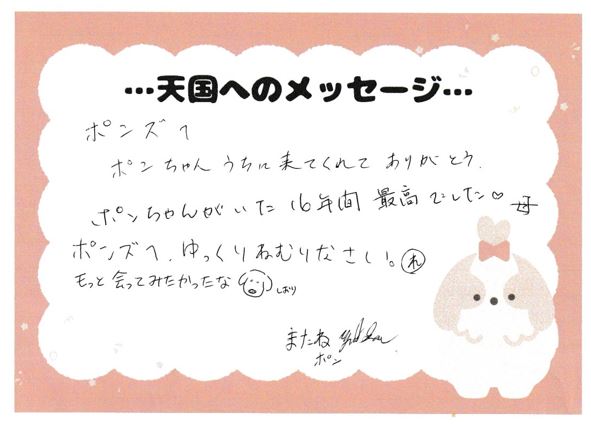 …天国へのメッセージ…
ポンズへ
ポンちゃんうちに来てくれてありがとう.
ポンちゃんがいた16年間 最高でした♡ 母
ポンズへ、ゆっくりねむりなさい。れ
もっと会ってみたかったな しおり
またね
ポン